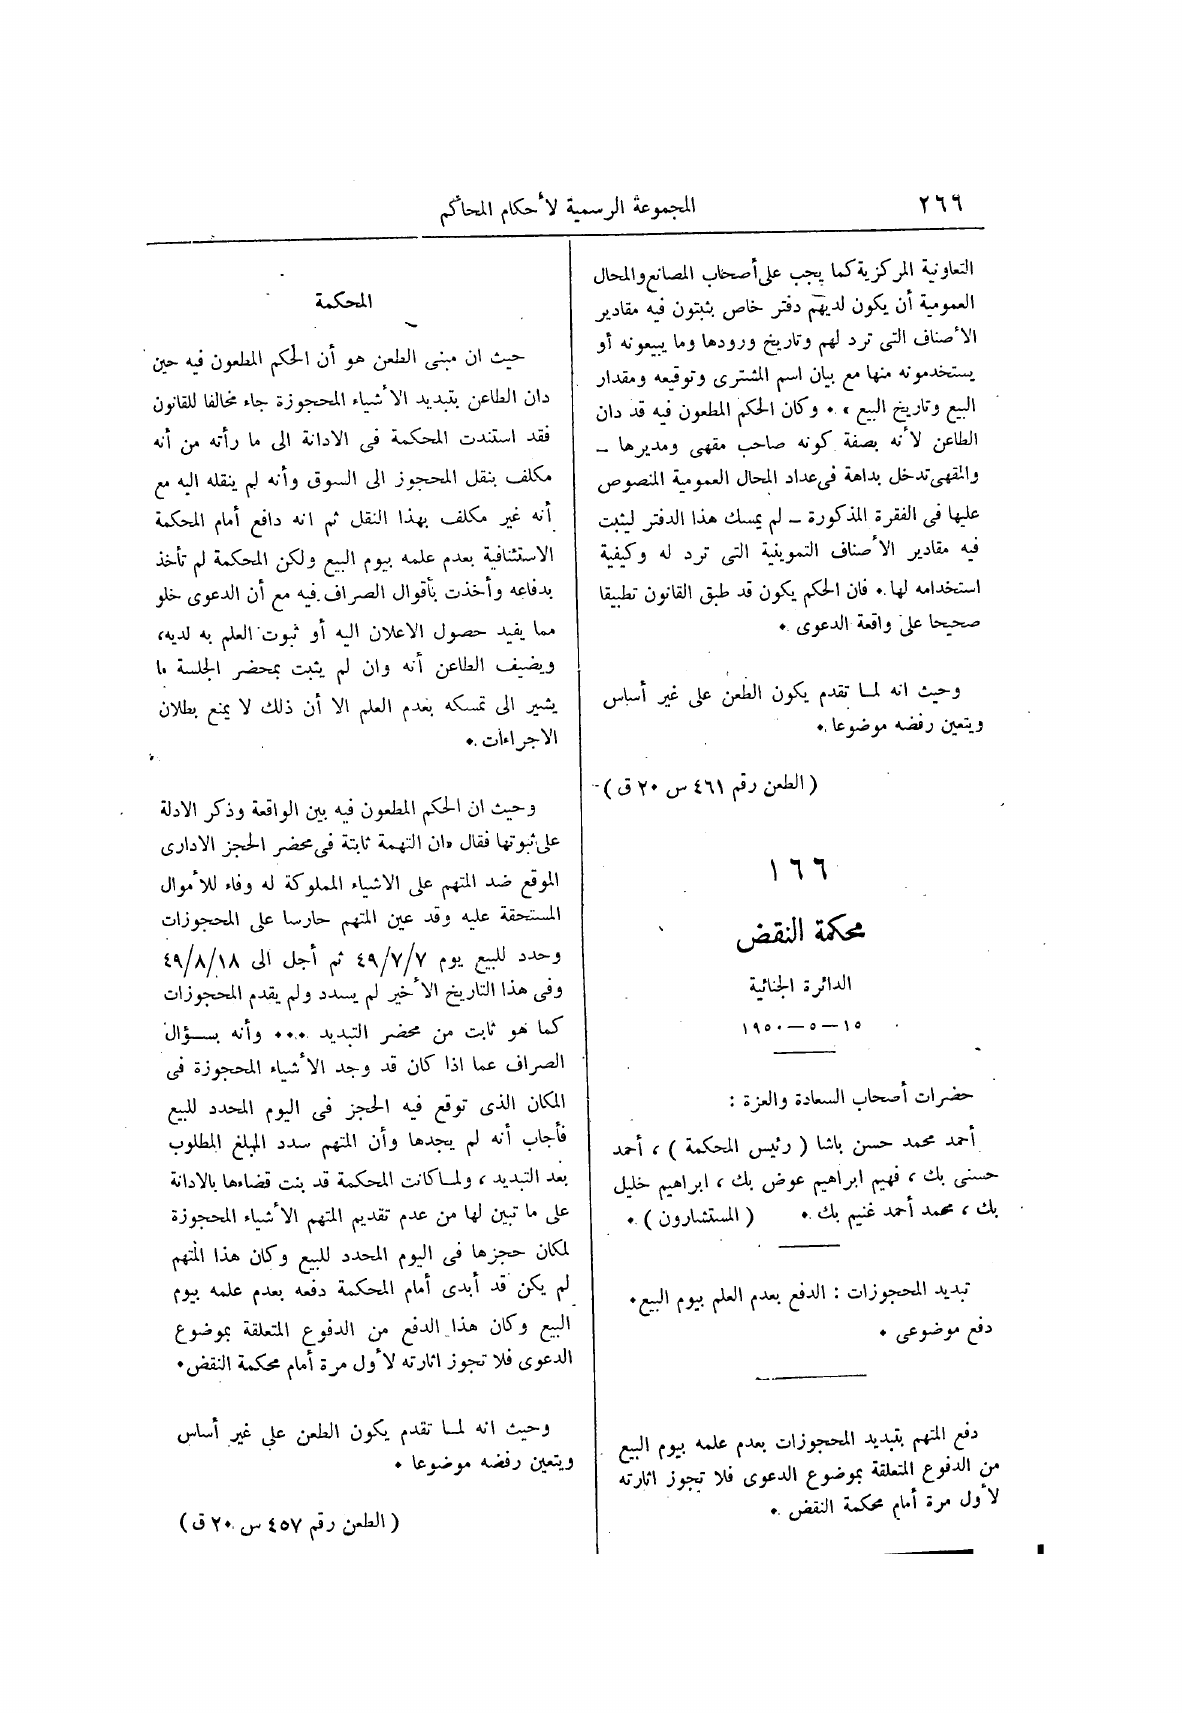 ٢٦٦
المجموعة الرسمية لأحكام المحاكم
التعاونية المركزية كما يجب على أصحاب المصانع والمحال
العمومية أن يكون لديهم دفتر خاص يثبتون فيه مقادير
الأصناف التى ترد لهم وتاريخ ورودها وما يبيعونه أو
يستخدمونه منها مع بيان اسم المشترى وتوقيعه ومقدار
البيع وتاريخ البيع » . وكان الحكم المطعون فيه قد دان
الطاعن لأنه بصفة كونه صاحب مقهى ومديرها ــ
والمقهى تدخل بداهة فى عداد المحال العمومية المنصوص
عليها فى الفقرة المذكورة ــ لم يمسك هذا الدفتر ليثبت
فيه مقادير الأصناف التموينية التى ترد له وكيفية
استخدامه لها . فان الحكم يكون قد طبق القانون تطبيقا
صحيحا على واقعة الدعوى .
وحيث انه لمــا تقدم يكون الطعن على غير أساس
ويتعين رفضه موضوعا .
( الطعن رقم ٤٦١ س ٢٠ ق )
١٦٦
محكمة النقض
الدائرة الجنائية
١٥ – ٥ – ١٩٥٠
حضرات أصحاب السعادة والعزة :
أحمد محمد حسن باشا ( رئيس المحكمة ) ، أحمد
حسنى بك ، فهيم ابراهيم عوض بك ، ابراهيم خليل
بك ، محمد أحمد غنيم بك . ( المستشارون ) .
تبديد المحجوزات : الدفع بعدم العلم بيوم البيع .
دفع موضوعى .
دفع المتهم بتبديد المحجوزات بعدم علمه بيوم البيع
من الدفوع المتعلقة بموضوع الدعوى فلا تجوز اثارته
لأول مرة أمام محكمة النقض .
المحكمة
حيث ان مبنى الطعن هو أن الحكم المطعون فيه حين
دان الطاعن بتبديد الأشياء المحجوزة جاء مخالفا للقانون
فقد استندت المحكمة فى الادانة الى ما رأته من أنه
مكلف بنقل المحجوز الى السوق وأنه لم ينقله اليه مع
أنه غير مكلف بهذا النقل ثم انه دافع أمام المحكمة
الاستئنافية بعدم علمه بيوم البيع ولكن المحكمة لم تأخذ
بدفاعه وأخذت بأقوال الصراف فيه مع أن الدعوى خلو
مما يفيد حصول الاعلان اليه أو ثبوت العلم به لديه،
ويضيف الطاعن أنه وان لم يثبت بمحضر الجلسة ما
يشير الى تمسكه بعدم العلم الا أن ذلك لا يمنع بطلان
الاجراءات .
وحيث ان الحكم المطعون فيه بين الواقعة وذكر الادلة
على ثبوتها فقال «ان التهمة ثابتة فى محضر الحجز الادارى
الموقع ضد المتهم على الاشياء المملوكة له وفاء للأموال
المستحقة عليه وقد عين المتهم حارسا على المحجوزات
وحدد للبيع يوم ٤٩/٧/٧ ثم أجل الى ٤٩/٨/١٨
وفى هذا التاريخ الأخير لم يسدد ولم يقدم المحجوزات
كما هو ثابت من محضر التبديد ... وأنه بســؤال
الصراف عما اذا كان قد وجد الأشياء المحجوزة فى
المكان الذى توقع فيه الحجز فى اليوم المحدد للبيع
فأجاب أنه لم يجدها وأن المتهم سدد المبلغ المطلوب
بعد التبديد ، ولمــا كانت المحكمة قد بنت قضاءها بالادانة
على ما تبين لها من عدم تقديم المتهم الأشياء المحجوزة
لمكان حجزها فى اليوم المحدد للبيع وكان هذا المتهم
لم يكن قد أبدى أمام المحكمة دفعه بعدم علمه بيوم
البيع وكان هذا الدفع من الدفوع المتعلقة بموضوع
الدعوى فلا تجوز اثارته لأول مرة أمام محكمة النقض .
وحيث انه لمــا تقدم يكون الطعن على غير أساس
ويتعين رفضه موضوعا .
( الطعن رقم ٤٥٧ س ٢٠ ق )